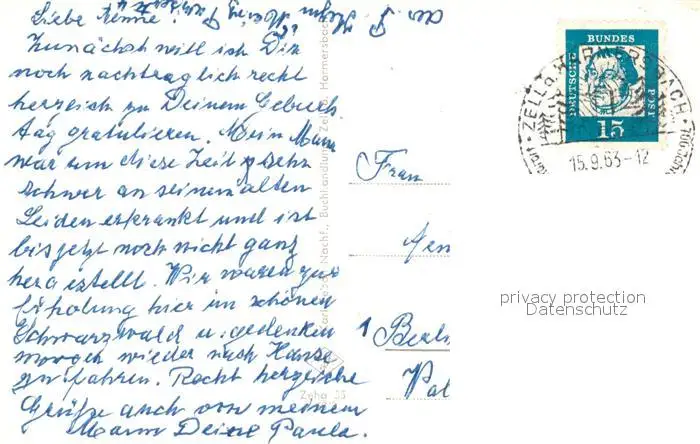 Liebe Aenne!
Zunächst will ich Dir
noch nachträglich recht
herzlich zu Deinem Geburts
tag gratulieren. Mein Mann
war um diese Zeit sehr
schwer an seinem alten
Leiden erkrankt und ist
bis jetzt noch nicht ganz
hergestellt. Wir waren zur
Erholung hier im schönen
Schwarzwald u. gedenken
morgen wieder nach Hause
zu fahren. Recht herzliche
Grüße auch von meinem
Mann Deine Paula.
Zeha 35
Frau
Aen
1 Berlin
Pal
DEUTSCHE
BUNDES
POST
15
ZELL a. HARMERSBACH
15.9.63-12
privacy protection
Datenschutz